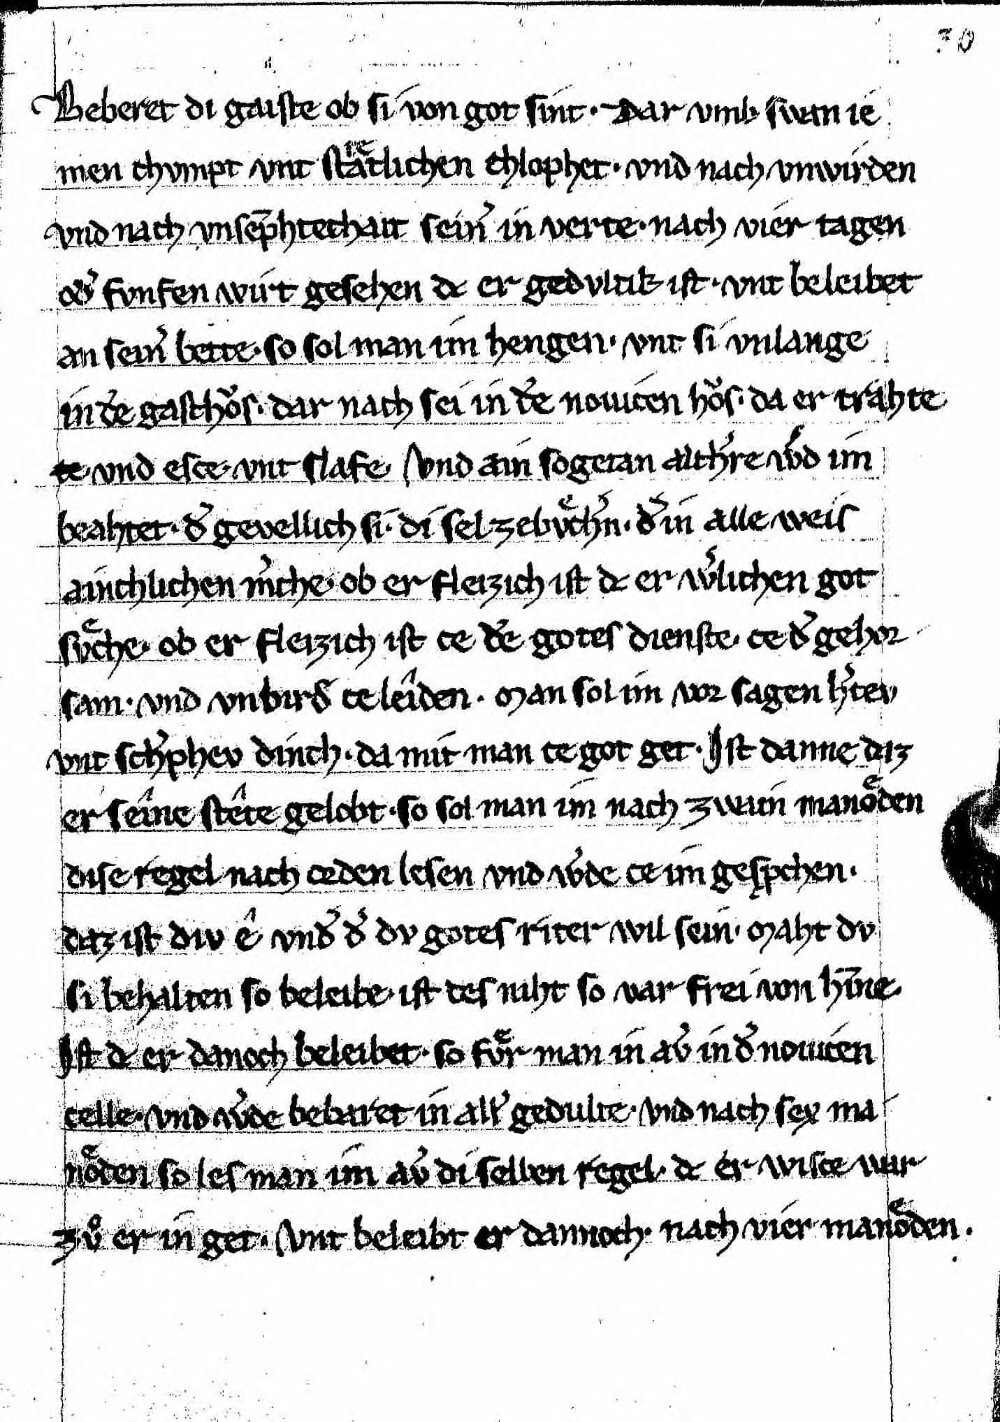 30
Beberet di gaiste ob si von got sint · Dar vmb swan ie
men chvmpt vnt stætlichen chlophet · vnd nach vnwirden
vnd nach vnsēphtechait sein͛ in verte · nach vier tagen
od͛ fvnfen wirt gesehen dc er gedvltik ist · vnt beleibet
an sein͛ bette · so sol man im hengen · vnt si vnlange
in d͛e gasthvͦs · dar nach sei in d͛e nouicen hvͦs · da er trahte
te · vnd esce · vnt slafe · Vnd ain sogetan alth͛re w͛d im
beahtet · d͛ gevellich si · di sel zebvͤch͛n · d͛ in alle weis
ainchlichen m͛che · ob er fleizich ist dc er w͛lichen got
svͤche · ob er fleizich ist ce d͛e gotes dienste · ce d͛ gehor
sam · vnd vnbird͛ ce leîden · Man sol im vor sagen h͛tev
vnt sch͛phev dinch · da mit man ce got get · Ist danne daz
er seîne stête gelobt · so sol man im nach zwain manoͤden
dise regel nach orden lesen vnd w͛de ce im gesp͛chen ·
daz ist div ê vnd͛ d͛ dv gotes riter wil sein · Maht dv
si behalten so beleibe · ist des niht so var frei von hīne ·
Ist dc er danoch beleibet · so fvͤr man in av͛ in d͛ nouicen
celle · vnd w͛de bebaret in all͛ gedulte · vnd nach sex ma
noͤden so les man im av͛ di selben regel · dc er wisce war
zvͦ er in get · Vnt beleibt er dannoch · nach vier manoͤden ·